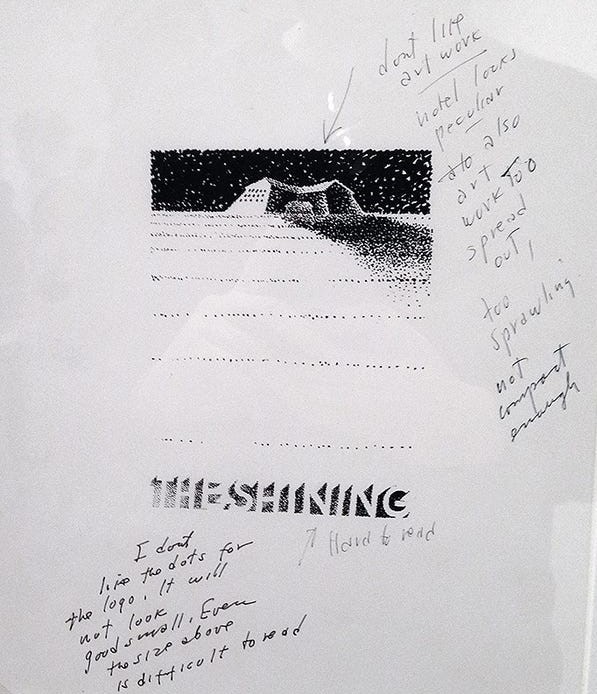 dont like
art work
hotel looks
peculiar
also
art
work too
spread
out!
too
sprawling.
not
compact
enough
THE SHINING
Hard to read
I dont
like the dots for
the logo. It will
not look
good small. Even
the size above
is difficult to read